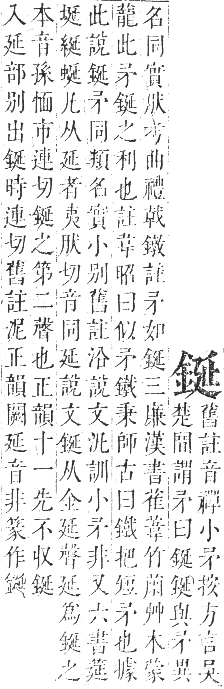 鋋
舊註音禪小矛按方言吳
楚間謂矛曰鋋鋋與矛異
名同實肰考曲禮戟鐓註矛如鋋三廉漢書萑葦竹蕭艸木蒙
龍此矛鋋之利也註韋昭曰似矛鐵秉師古曰鐵把短矛也據
此說鋋矛同類名實小別舊註沿說文汎訓小矛非又六書筵
埏綖蜒凡从延者夷肰切音同延說文鋋从金延聲延為鋋之
本音孫愐市連切鋋之第二聲也正韻十一先不收鋋
入延部別出鋋時連切舊註泥正韻闕延音非篆作鋋